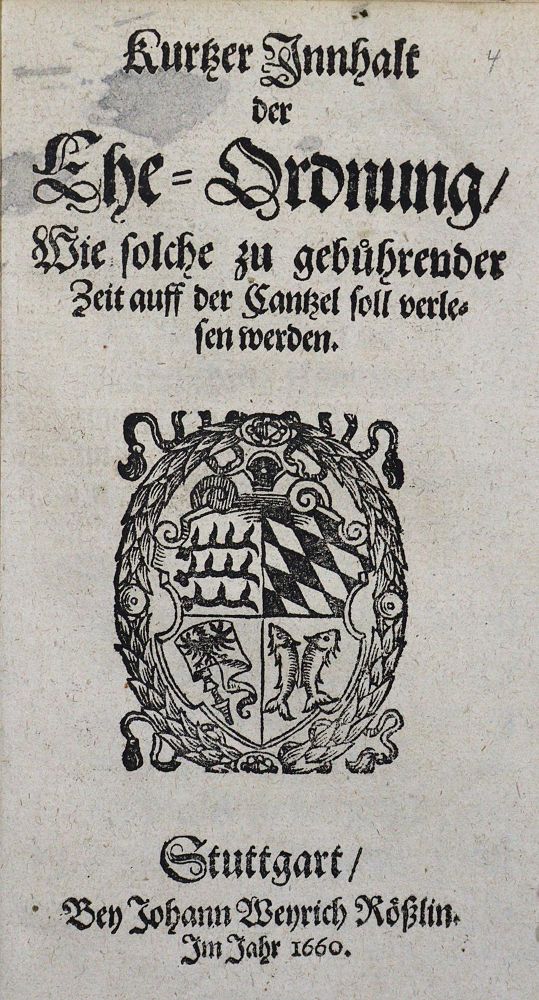 Kurtzer Innhalt
4
der
Ehe-Ordnung/
Wie solche zu gebuͤhrender
Zeit auff der Cantzel soll verle-
sen werden.
Stuttgart/
Bey Johann Weyrich Rößlin.
Im Jahr 1660.